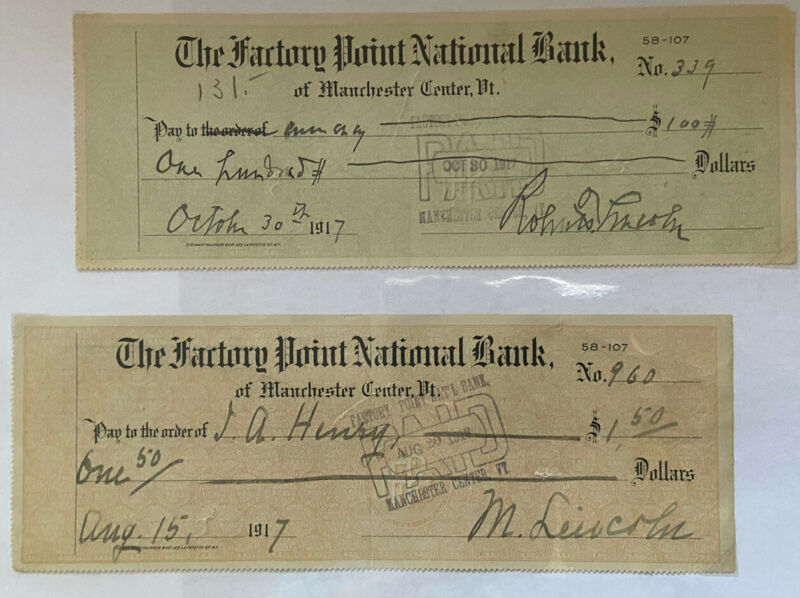 The Factory Point National Bank,
58-107
No. 339
131.-
of Manchester Center, Vt.
Pay to the order of $100#
One hundred# Dollars
PAID
OCT 30 1917
MANCHESTER
October 30th 1917
Robert T Lincoln
The Factory Point National Bank,
58-107
No. 960
of Manchester Center, Vt.
FACTORY POINT NAT'L BANK,
Pay to the order of J. A. Henry, $1,50
PAID
AUG
One 50/ Dollars
MANCHESTER CENTER, VT.
Aug. 15, 1917
M. Lincoln